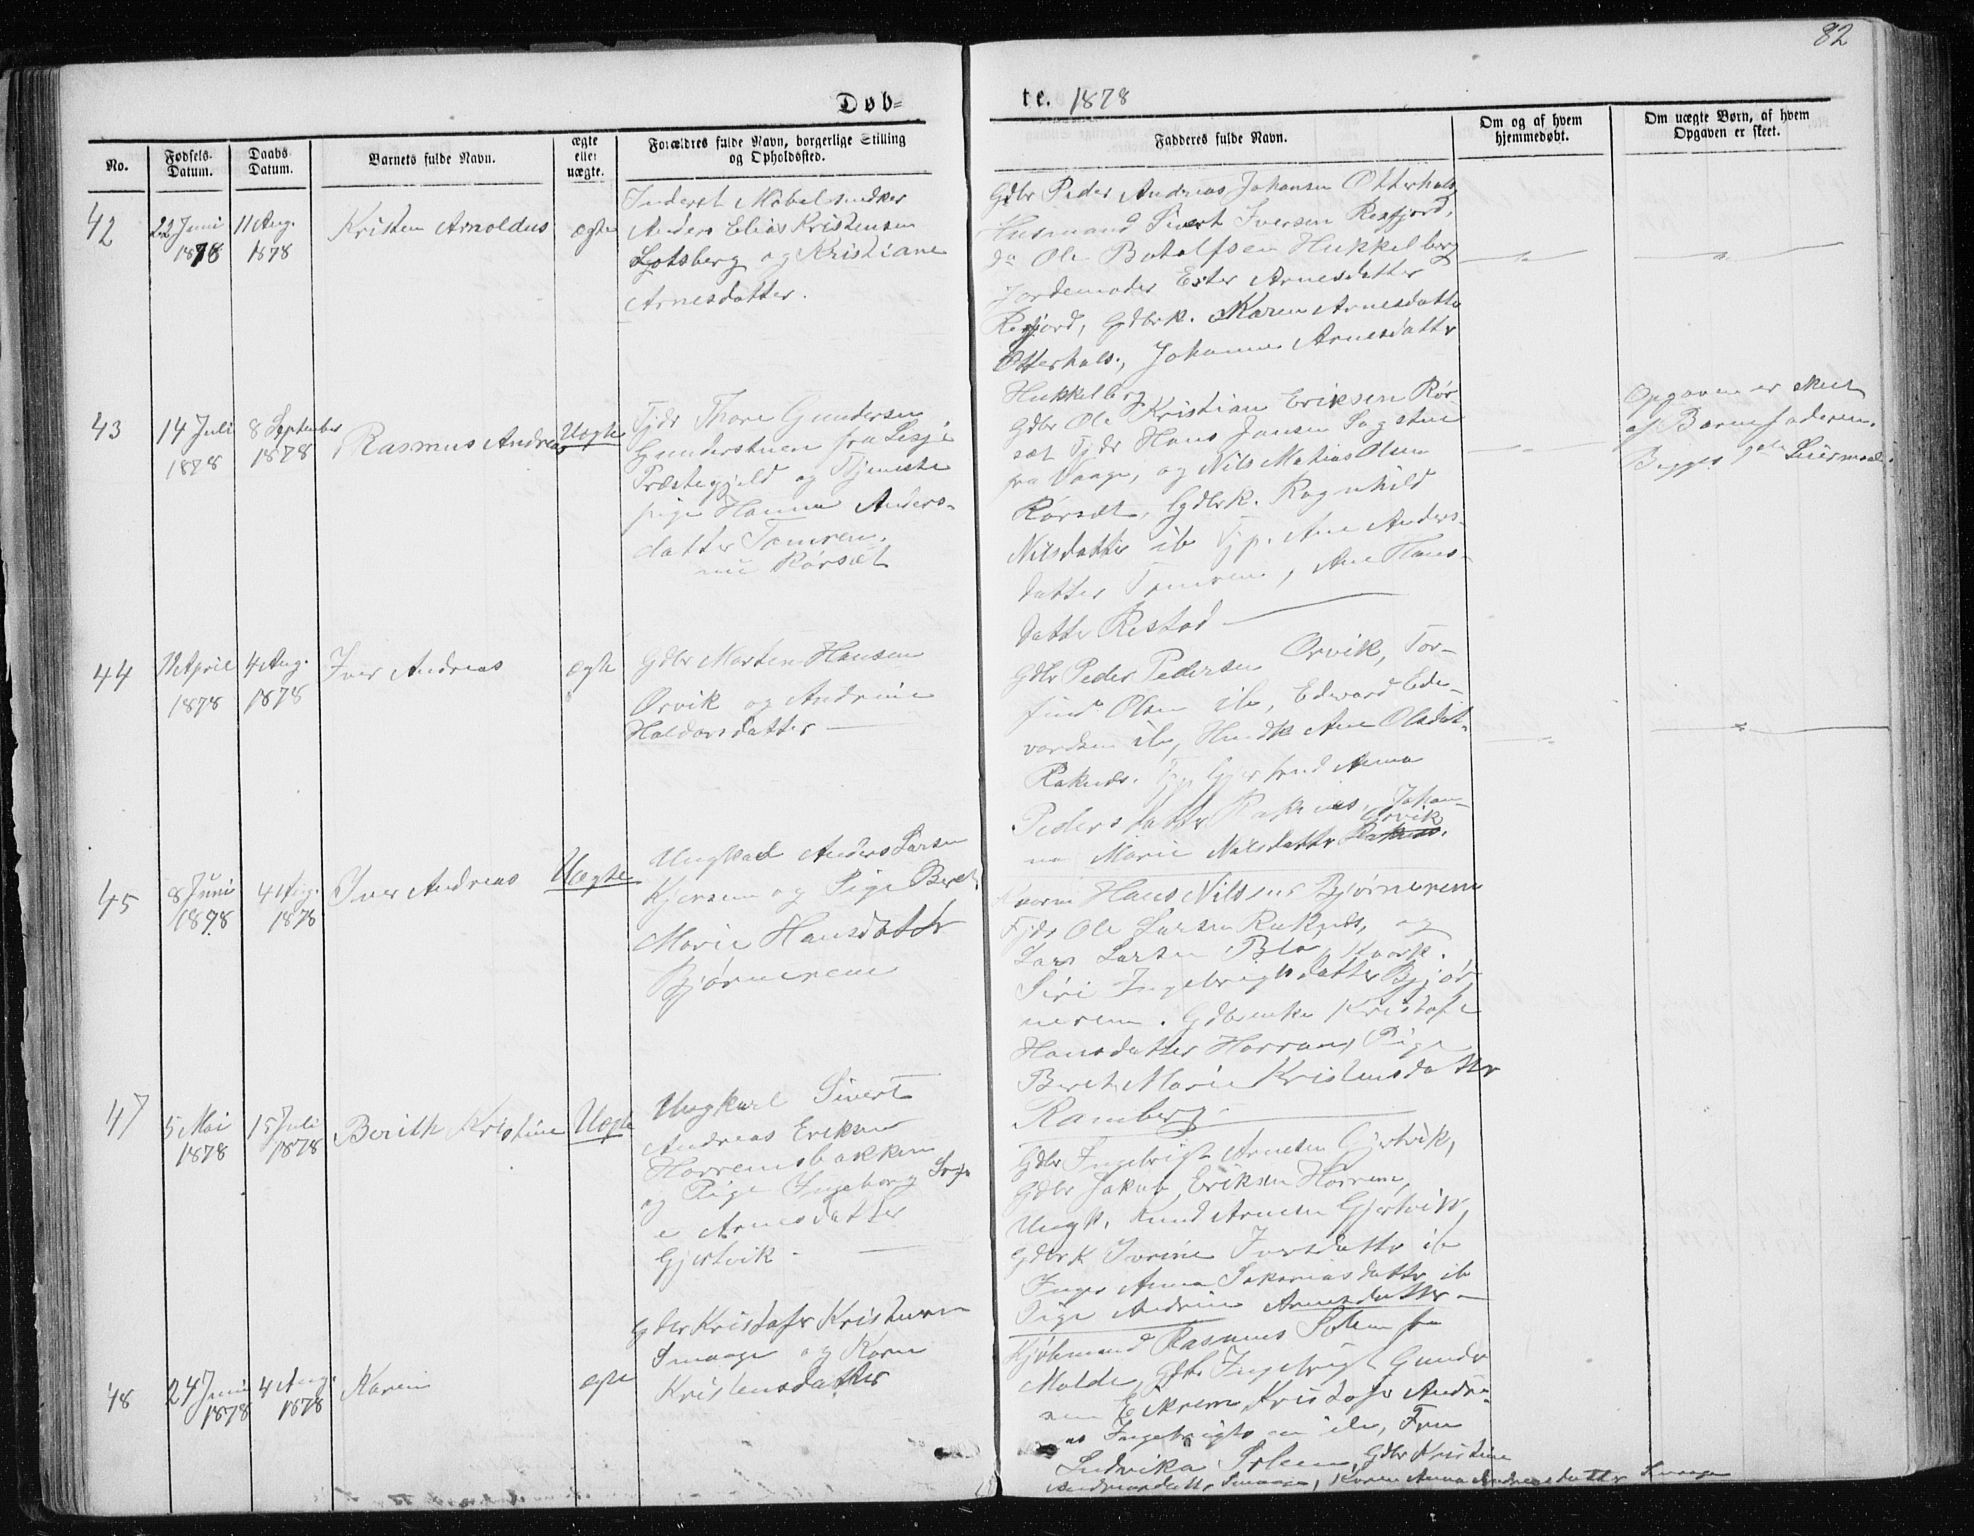 82
Døb=
te. 1878
No.
Fødsels-
Datum.
Daabs
Datum.
Barnets fulde Navn.
ægte
eller
uægte.
Forældres fulde Navn, borgerlige Stilling
og Opholdssted.
Fadderes fulde Navn.
Om og af hvem
hjemmedøbt.
Om uægte Børn, af hvem
Opgaven er skeet.
42
22 Juni
1878
11 Aug.
1878
Kristen Arnoldus
ægte
Inderst Møbelsnedker
Anders Elias Kristensen
Lotsberg og Kristiane
Arnesdatter.
Gdbr Peder Andreas Johansen Otterhals
Husmand Sivert Iversen Rexfjord,
do Ole Botolfsen Hukkelberg
Jordemoder Ester Arnesdatter
Rexfjord, Gdbrk. Karen Arnesdatter
Otterhals, Johanne Arnesdatter
Hukkelberg
43
14 Juli
1878
8 September
1878
Rasmus Andreas
Uægte
Tjdr Thore Gundersen
Gunderstuen fra Lesje
Præstegjeld og Tjeneste
pige Hanna Anders-
datter Tomren,
nu Rørsæt
Gdbr Ole Kristian Eriksen Rør
sæt Tjdr Hans Jansen Sagstuen
fra Vaage, og Nils Matias Olsen
Rørsæt, Gdbrk. Ragnhild
Nilsdatter ib Tjp. Ane Anders-
datter Tomren, Ane Hans-
datter Restad
Opgaven er skeet
af Barnefaderen.
Begges Leiermaal
44
12 April
1878
4 Aug.
1878
Iver Andreas
ægte
Gdbr Morten Hansen
Orvik og Andrine
Haldorsdatter
Gdbr Peder Pedersen Orvik, Tor-
find Olsen ib, Edvard Ed-
vardsen ib, Husmdk Ane Olsdat.
Raknes. Tjp Gjertrud Anna
Pedersdatter Raknes, Johan-
na Marie Nilsdatter Raknes. Orvik
45
8 Juni
1878
4 Aug.
1878
Iver Andreas
Uægte
Ungkarl Anders Larsen
Kjersem og Pige Beret
Marie Hansdatter
Bjørnerem
Hans Nilsen Bjørnerem
Tjdr Ole Larsen Raknes, og
Lars Larsen
Siri Ingebrigtsdatter Bjør
nerem. Gdbrenke Kristofa
Hansdatter Horrem, Pige
Beret Marie Kristensdatter
Ramberg
47
5 Mai
1878
15 Juli
1878
Berith Kristine
Uægte
Ungkarl Sivert
Andreas Eriksen
Horremsbakken
og Pige Ingeborg
Arnesdatter
Gjertvik
Gdbr Ingebrigt Arnesen Gjertvik,
Gdbr Jakob Eriksen Horrem,
Ungk. Knud Arnesen Gjertvik,
Gdbrk Iverine Iversdatter ib
Inger Anna Sakariasdatter ib
Pige Andrine Arnesdatter
48
24 Juni
1878
4 Aug.
1878
Karen
ægte
Gdbr Kristofer Kristensen
Smaage og Karen
Kristensdatter
Kjøbmand Rasmus Solem fra
Molde, Gdbr Ingebrigt Gunder
sen Eikrem, Kristofer Andre-
as Ingebrigtsen ib, Fru
Ludvika Solem, Gdbr Kristine
Andreasdatter Smaage, Karen Anna Andreasdatter Smaage